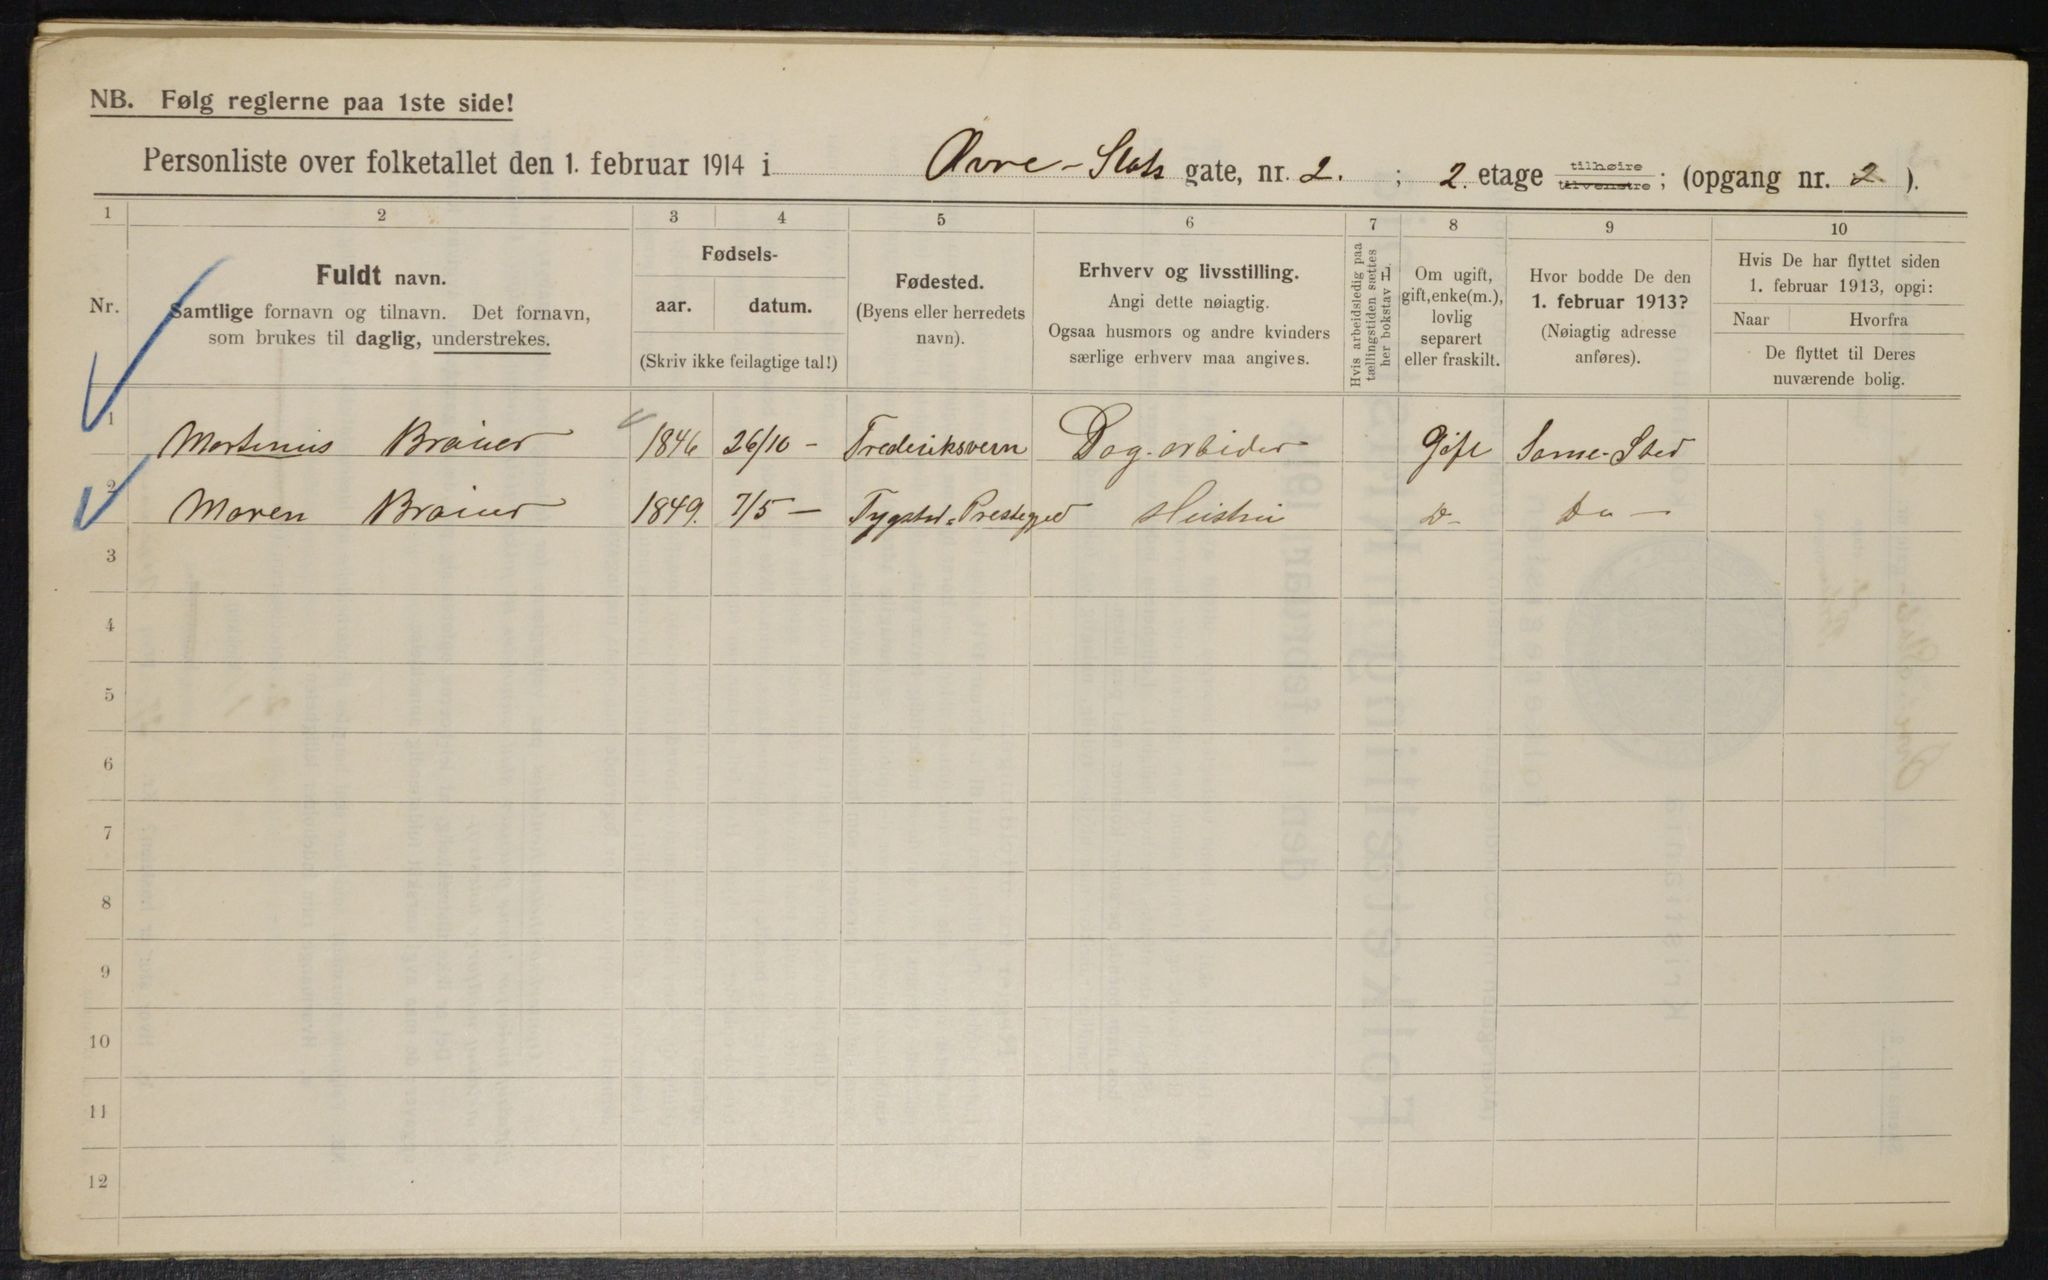 NB. Følg reglerne paa 1ste side!
Personliste over folketallet den 1. februar 1914 i Øvre-Slots gate, nr. 2. ; 2. etage tilhøire tilvenstre ; (opgang nr. 2. ).
1 2 3 4 5 6 7 8 9 10
Nr.
Fuldt navn.
Samtlige fornavn og tilnavn. Det fornavn,
som brukes til daglig, understrekes.
Fødsels-
aar. datum.
(Skriv ikke feilagtige tal!)
Fødested.
(Byens eller herredets
navn).
Erhverv og livsstilling.
Angi dette nøiagtig.
Ogsaa husmors og andre kvinders
særlige erhverv maa angives.
Hvis arbeidsledig paa
tællingstiden sættes
her bokstav L.
Om ugift,
gift, enke(m.),
lovlig
separert
eller fraskilt.
Hvor bodde De den
1. februar 1913?
(Nøiagtig adresse
anføres).
Hvis De har flyttet siden
1. februar 1913, opgi:
Naar Hvorfra
De flyttet til Deres
nuværende bolig.
1 Martinius 1846 26/10 - Frederiksvern Dag-arbider Gift Same-Sted
2 Maren 1849. 7/5 - Hustru Do - Do -
3
4
5
6
7
8
9
10
11
12